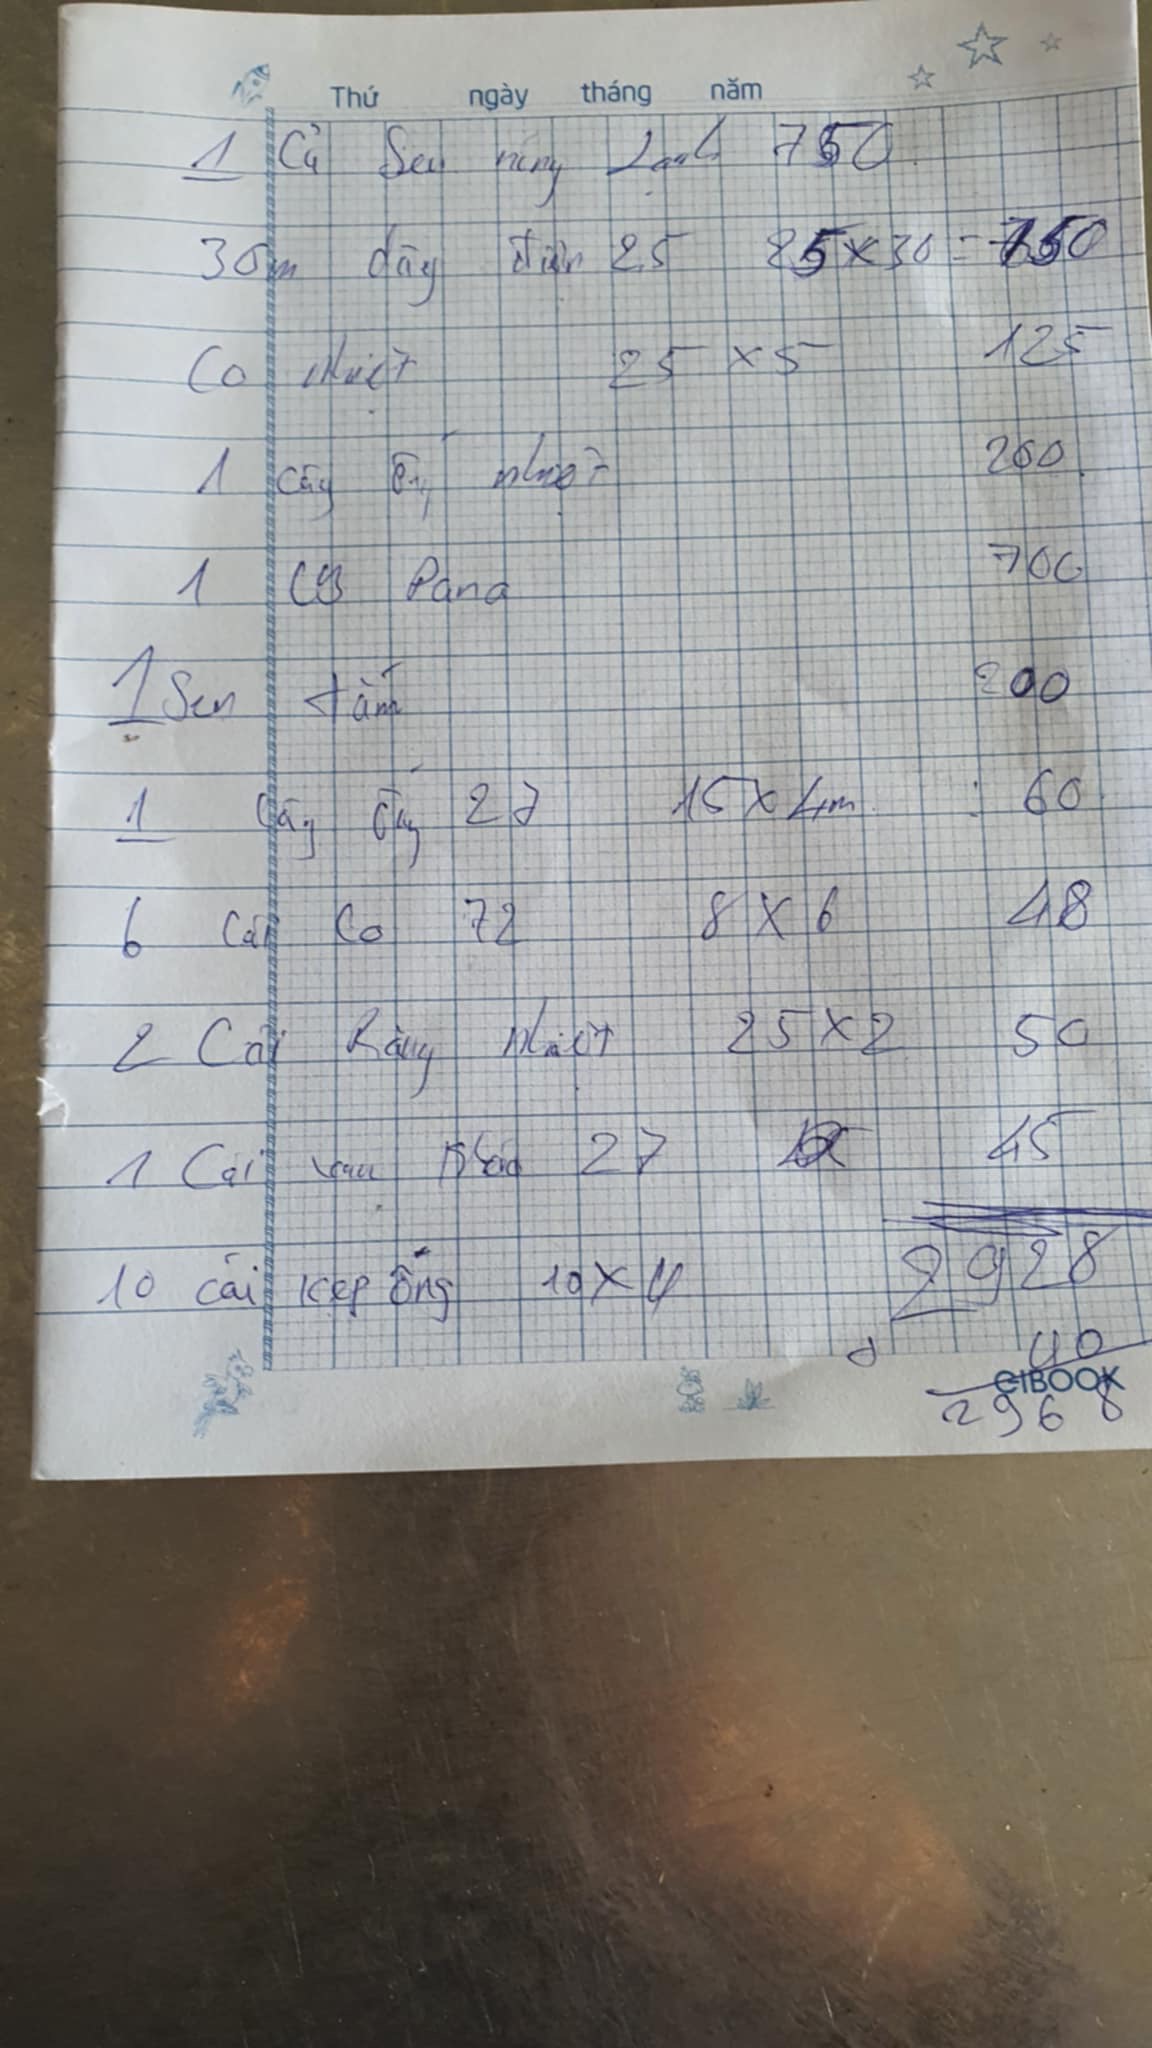 Thứ ngày tháng năm
1 Củ Sen nóng Lạnh 750
30m dây điện 25 25 x 30 = 750
Co nhiệt 25 x 5 125
1 cây ống nhiệt 200
1 CB Pana 700
1 Sen tắm 200
1 Cây ống 27 15 x 4m : 60
6 Cái Co 72 8 x 6 48
2 Cái Răng nhiệt 25 x 2 50
1 Cái van 27 45
2928
10 cái kẹp ống 10 x 4
40
CIBOOK
2968